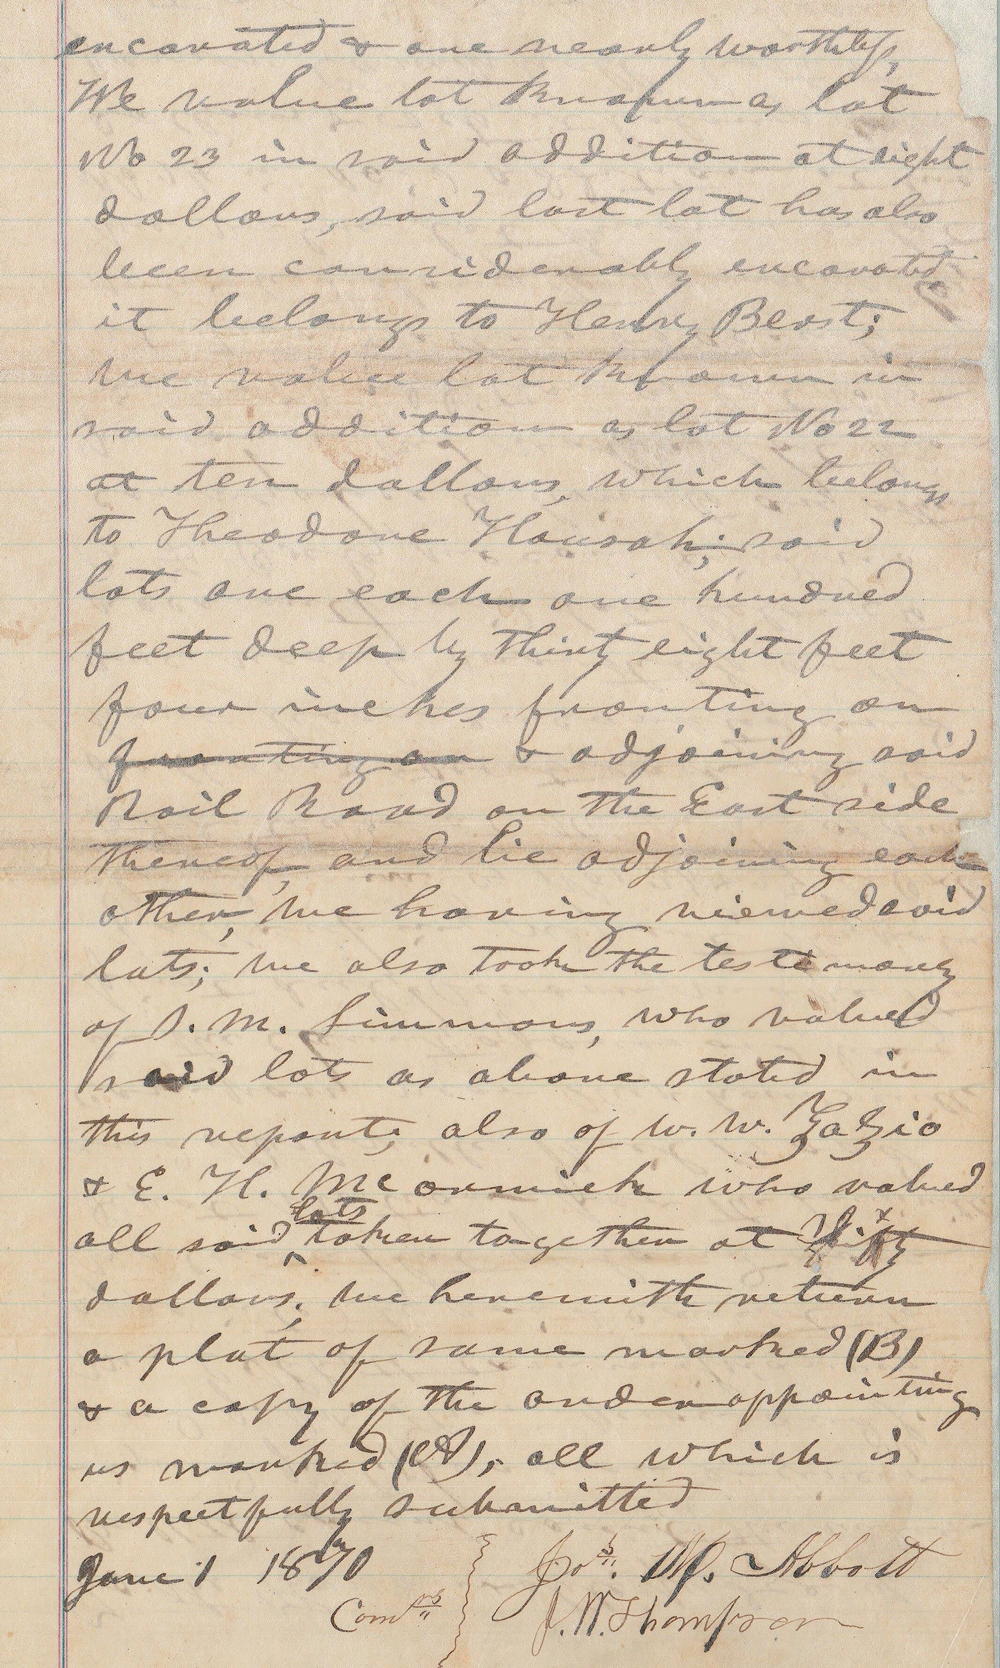 excavated & are nearly worthless,
We value lot known as lot
No 23 in said addition at eight
dollars, said last lot has also
been considerably excavated
it belongs to Henry Berst;
we value lot known in
said addition as lot No 22
at ten dollars, which belongs
to Theodore Hausah; said
lots are each one hundred
feet deep by thirty eight feet
four inches fronting on
fronting on & adjoining said
Rail Road on the East side
thereof, and lie adjoining each
other, we having viewed said
lots; we also took the testimony
of S. M. Simmons, who valued
said lots as above stated in
this report, also of W. W. Gazzio
& E. H. McCormick who valued
all said lots taken together at fifty
dollars; we herewith return
a plat of same marked (B)
& a copy of the order appointing
us marked (A), all which is
respectfully submitted
June 1 1870 Jos. M. Abbott
Comrs J. W. Thompson